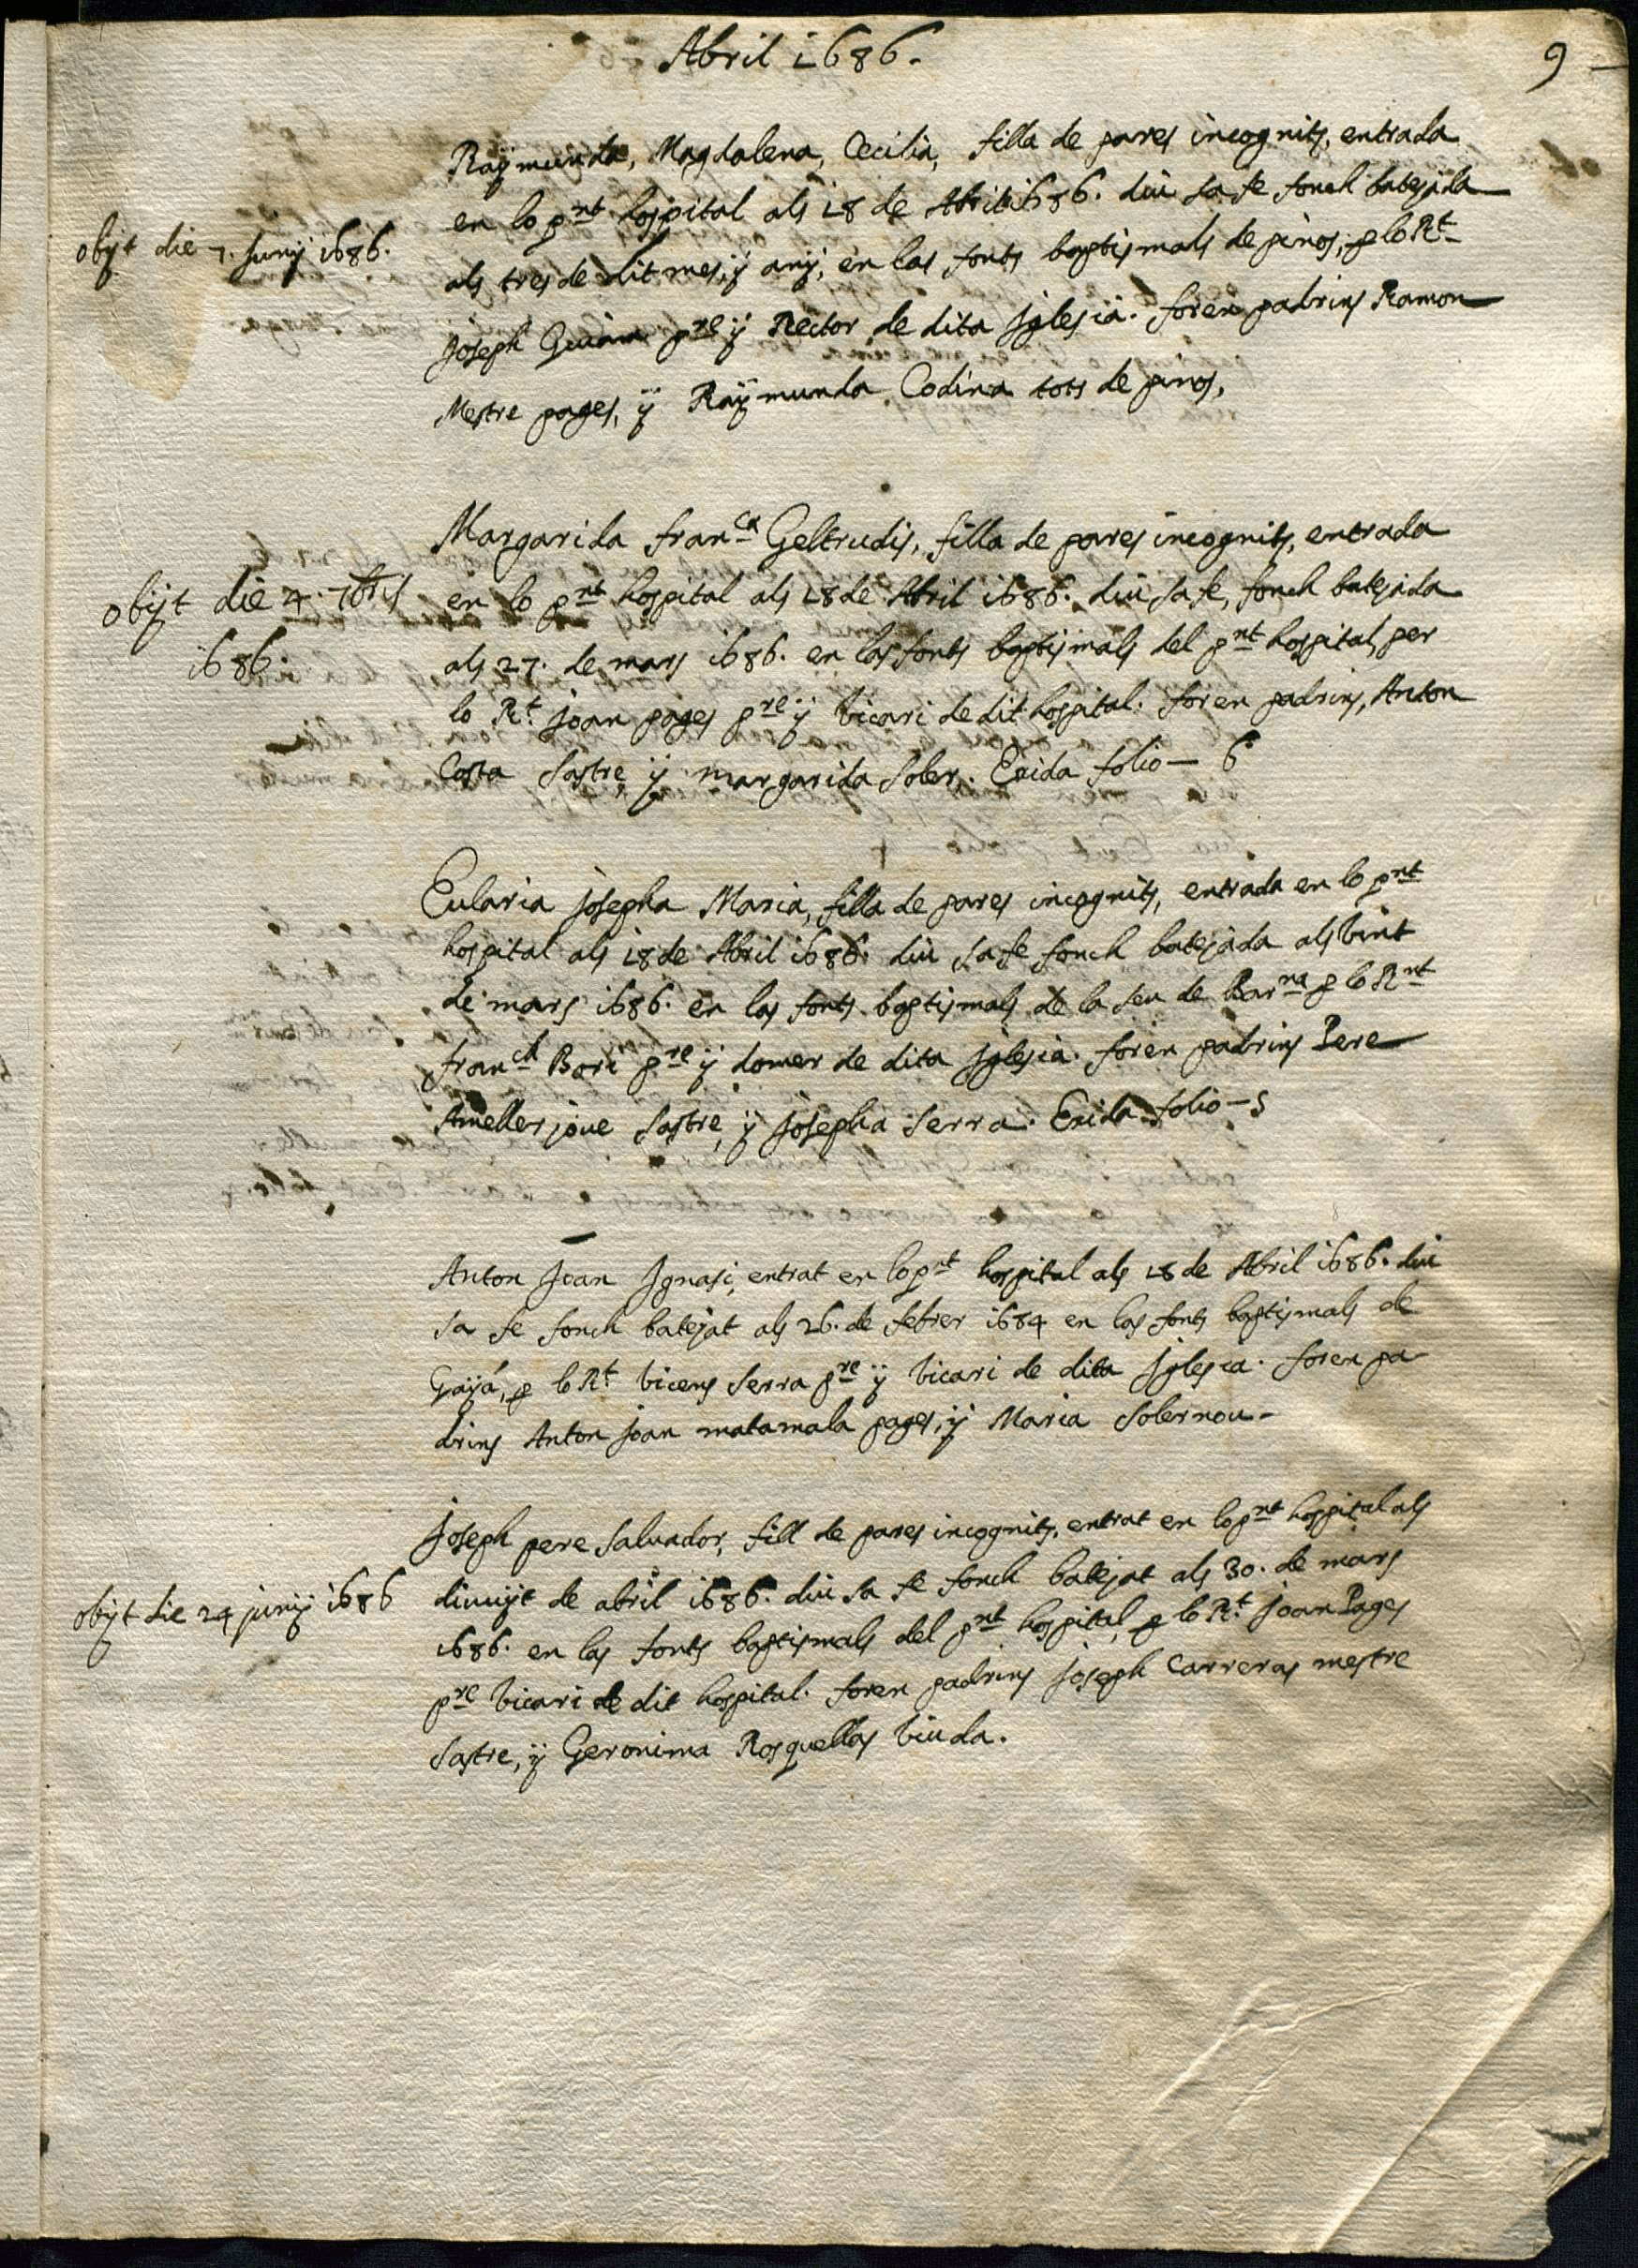 Abril 1686.
9
Raÿmunda, Magdalena, Cecilia, filla de pares incognits, entrada
en lo pnt hospital als 18 de Abril 1686. diu sa fe fonch batejada
obijt die 7. Junij 1686.
als tres de dit mes, ÿ anÿ, en las fonts baptismals de pinos, p lo Rt
Joseph pre ÿ Rector de dita Jglesia. foren padrins Ramon
Mestre pages, ÿ Raÿmunda Codina tots de pinos,
Margarida franca Geltrudis, filla de pares incognits, entrada
obijt die 4. 7bris
1686.
en lo pnt hospital als 18 de Abril 1686. diu sa fe, fonch batejada
als 27. de mars 1686. en las fonts baptismals del pnt hospital, per
lo Rt. joan pages pre ÿ vicari de dit hospital. foren padrins, Anton
Costa sastre, ÿ margarida soler. Exida folio — 6
Eularia josepha Maria, filla de pares incognits, entrada en lo pnt
hospital als 18 de Abril 1686. diu sa fe fonch batejada als vint
de mars 1686. en las fonts baptismals de la seu de Barna p lo Rnt
franch Bori pre ÿ domer de dita Jglesia. foren padrins Pere
Ameller jove sastre, ÿ josepha serra. Exida folio — 5
Anton Joan Jgnasi, entrat en lo pnt hospital als 18 de Abril 1686. diu
sa fe fonch batejat als 26. de febrer 1684 en las fonts baptismals de
Gaÿá, p lo Rt. vicens serra pre ÿ vicari de dita Jglesia. foren pa
drins Anton joan matamala pages, ÿ Maria solernou -
Joseph pere salvador, fill de pares incognits, entrat en lo pnt hospital als
obijt die 24 junij 1686
divuÿt de abril 1686. diu sa fe fonch batejat als 30. de mars
1686. en las fonts baptismals del pnt hospital, p lo Rt. joan Pages
pre vicari de dit hospital. foren padrins joseph Carreras mestre
sastre, ÿ Geronima Rosquellas viuda.